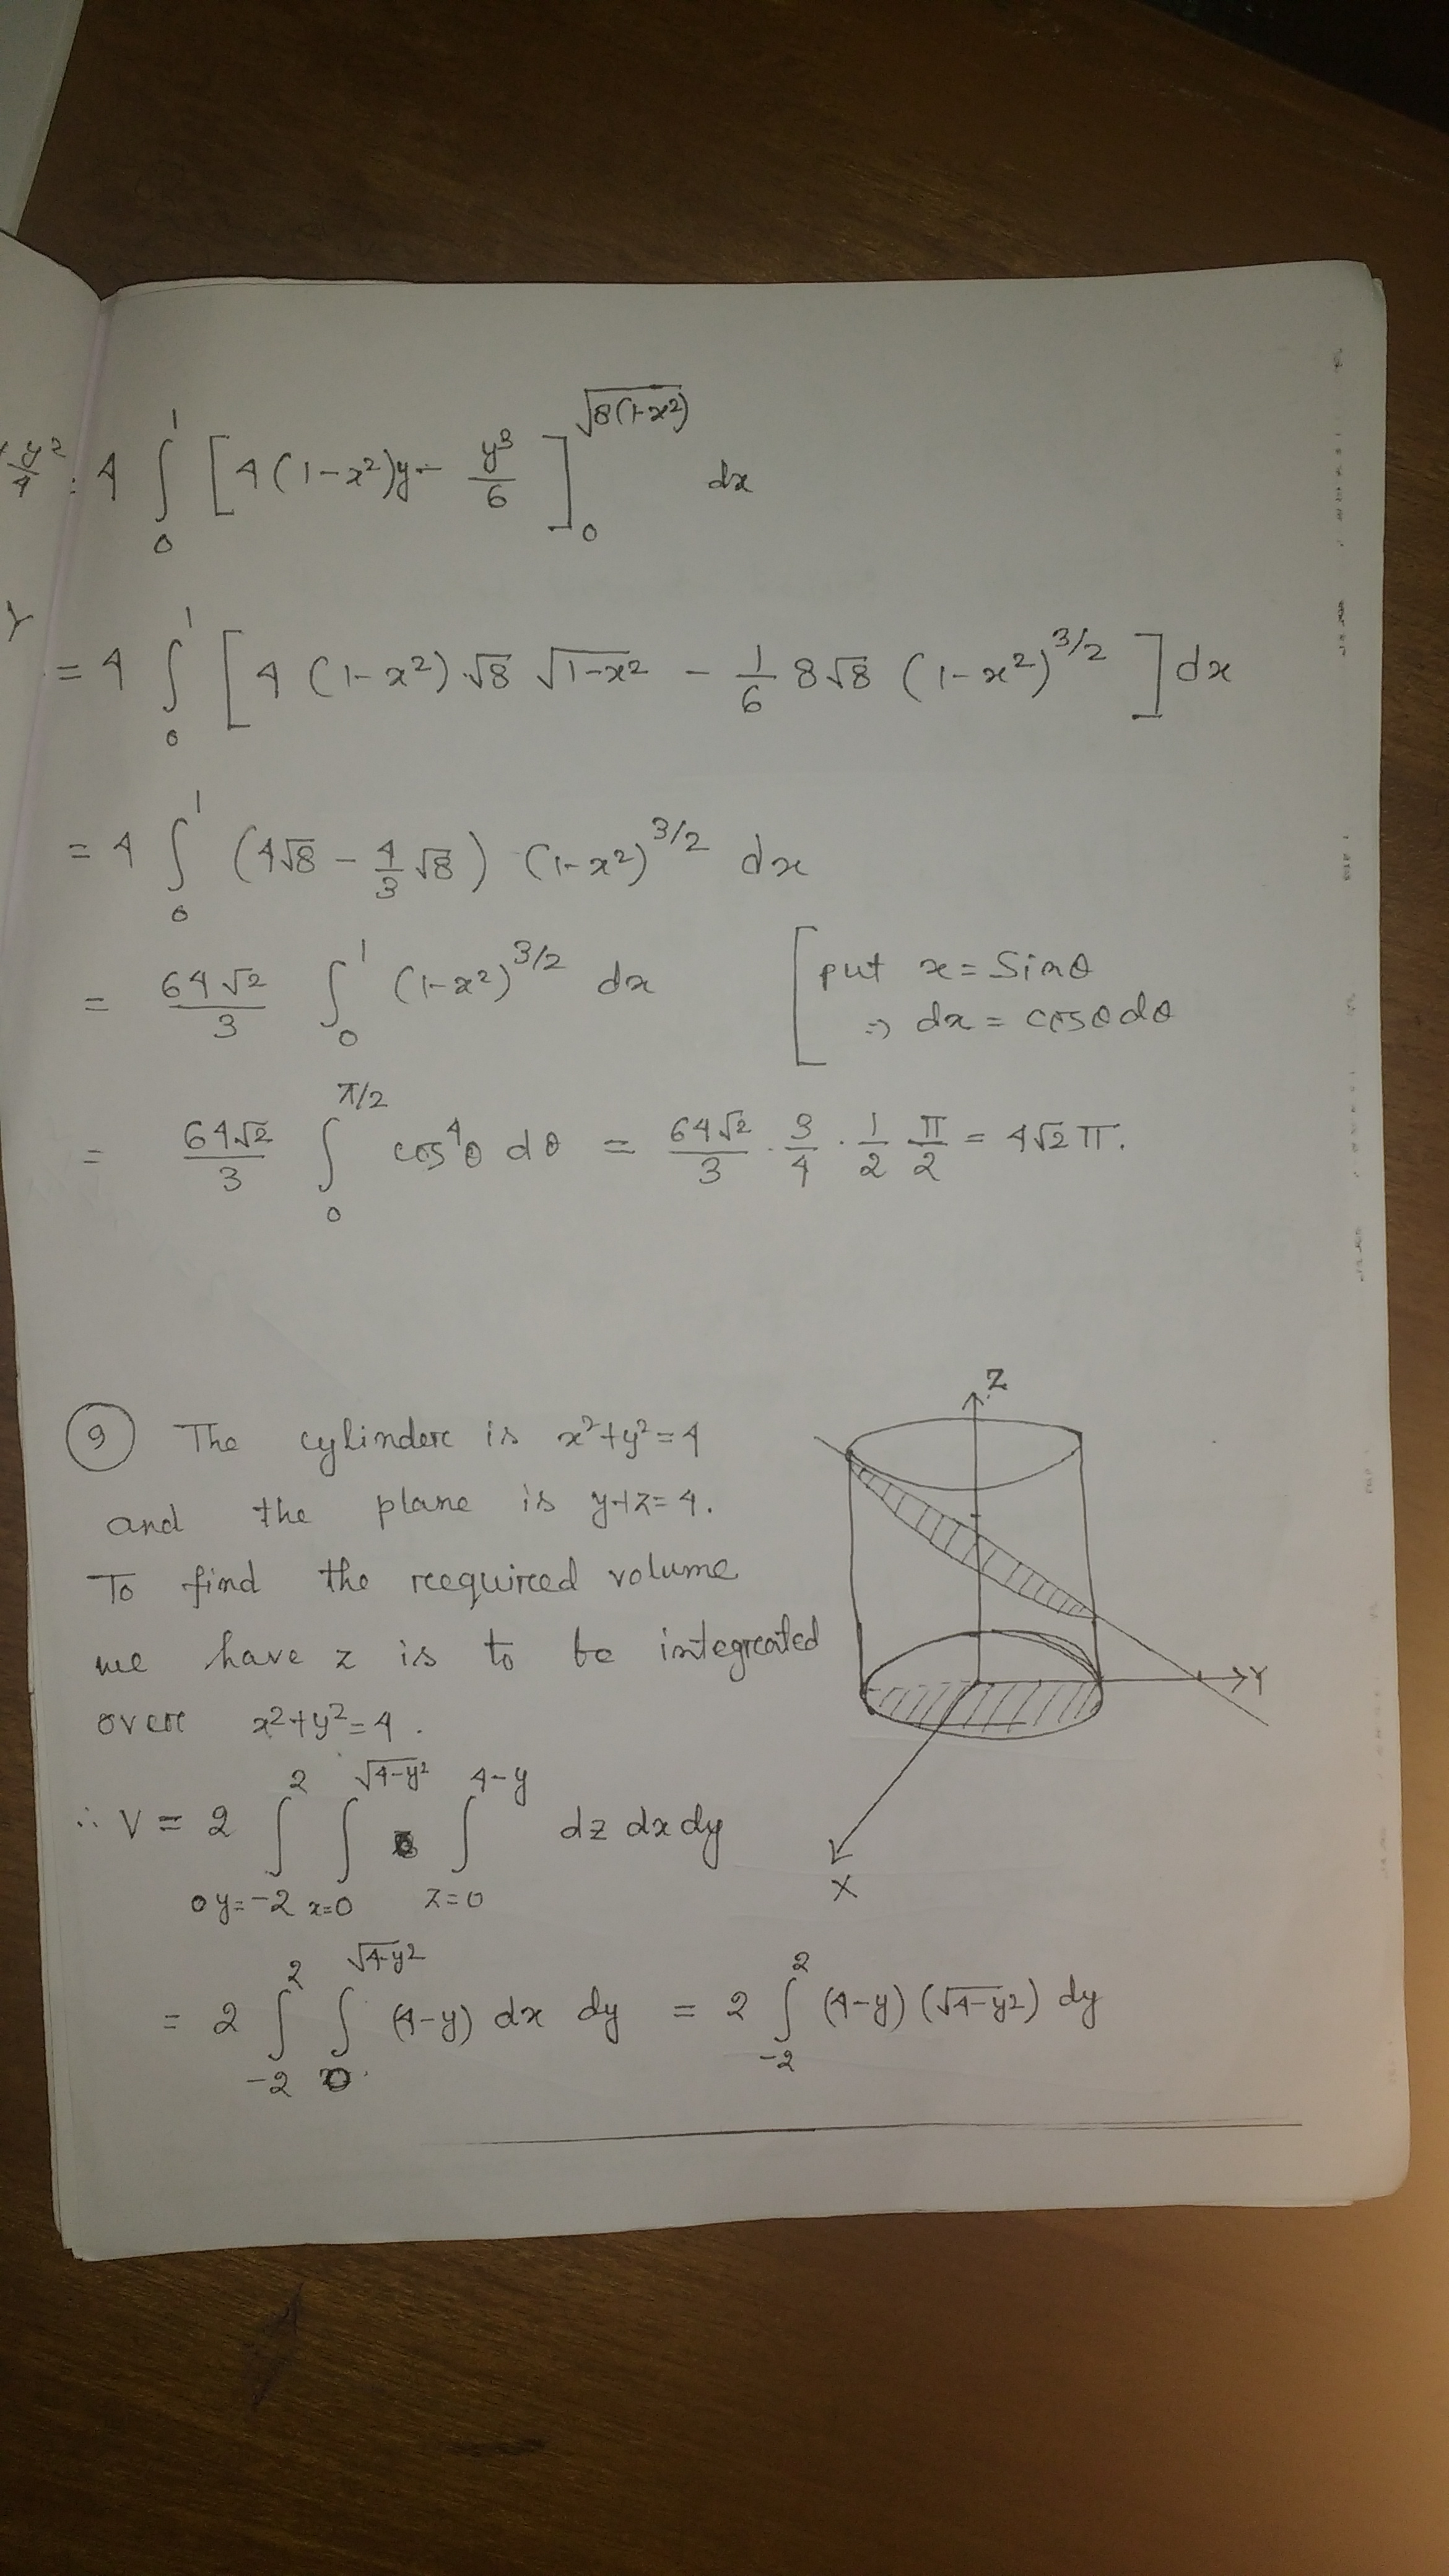 4 ∫₀¹ [4(1-x²)y - y³/6]₀^√8(1-x²) dx
= 4 ∫₀¹ [4(1-x²)√8 √1-x² - 1/6 8√8 (1-x²)^3/2] dx
= 4 ∫₀¹ (4√8 - 4/3 √8) (1-x²)^3/2 dx
= 64√2/3 ∫₀¹ (1-x²)^3/2 dx [put x = Sinθ
⇒ dx = cosθdθ
= 64√2/3 ∫₀^π/2 cos⁴θ dθ = 64√2/3 · 3/4 · 1/2 π/2 = 4√2 π.
Z
9 The cylinder is x²+y²=4
and the plane is y+z=4.
To find the required volume
we have z is to be integrated
Y
over x²+y²=4.
∴ V = 2 ∫_{y=-2}^{2} ∫_{x=0}^{√4-y²} ∫_{z=0}^{4-y} dz dx dy
X
= 2 ∫_{-2}^{2} ∫_{0}^{√4-y²} (4-y) dx dy = 2 ∫_{-2}^{2} (4-y)(√4-y²) dy